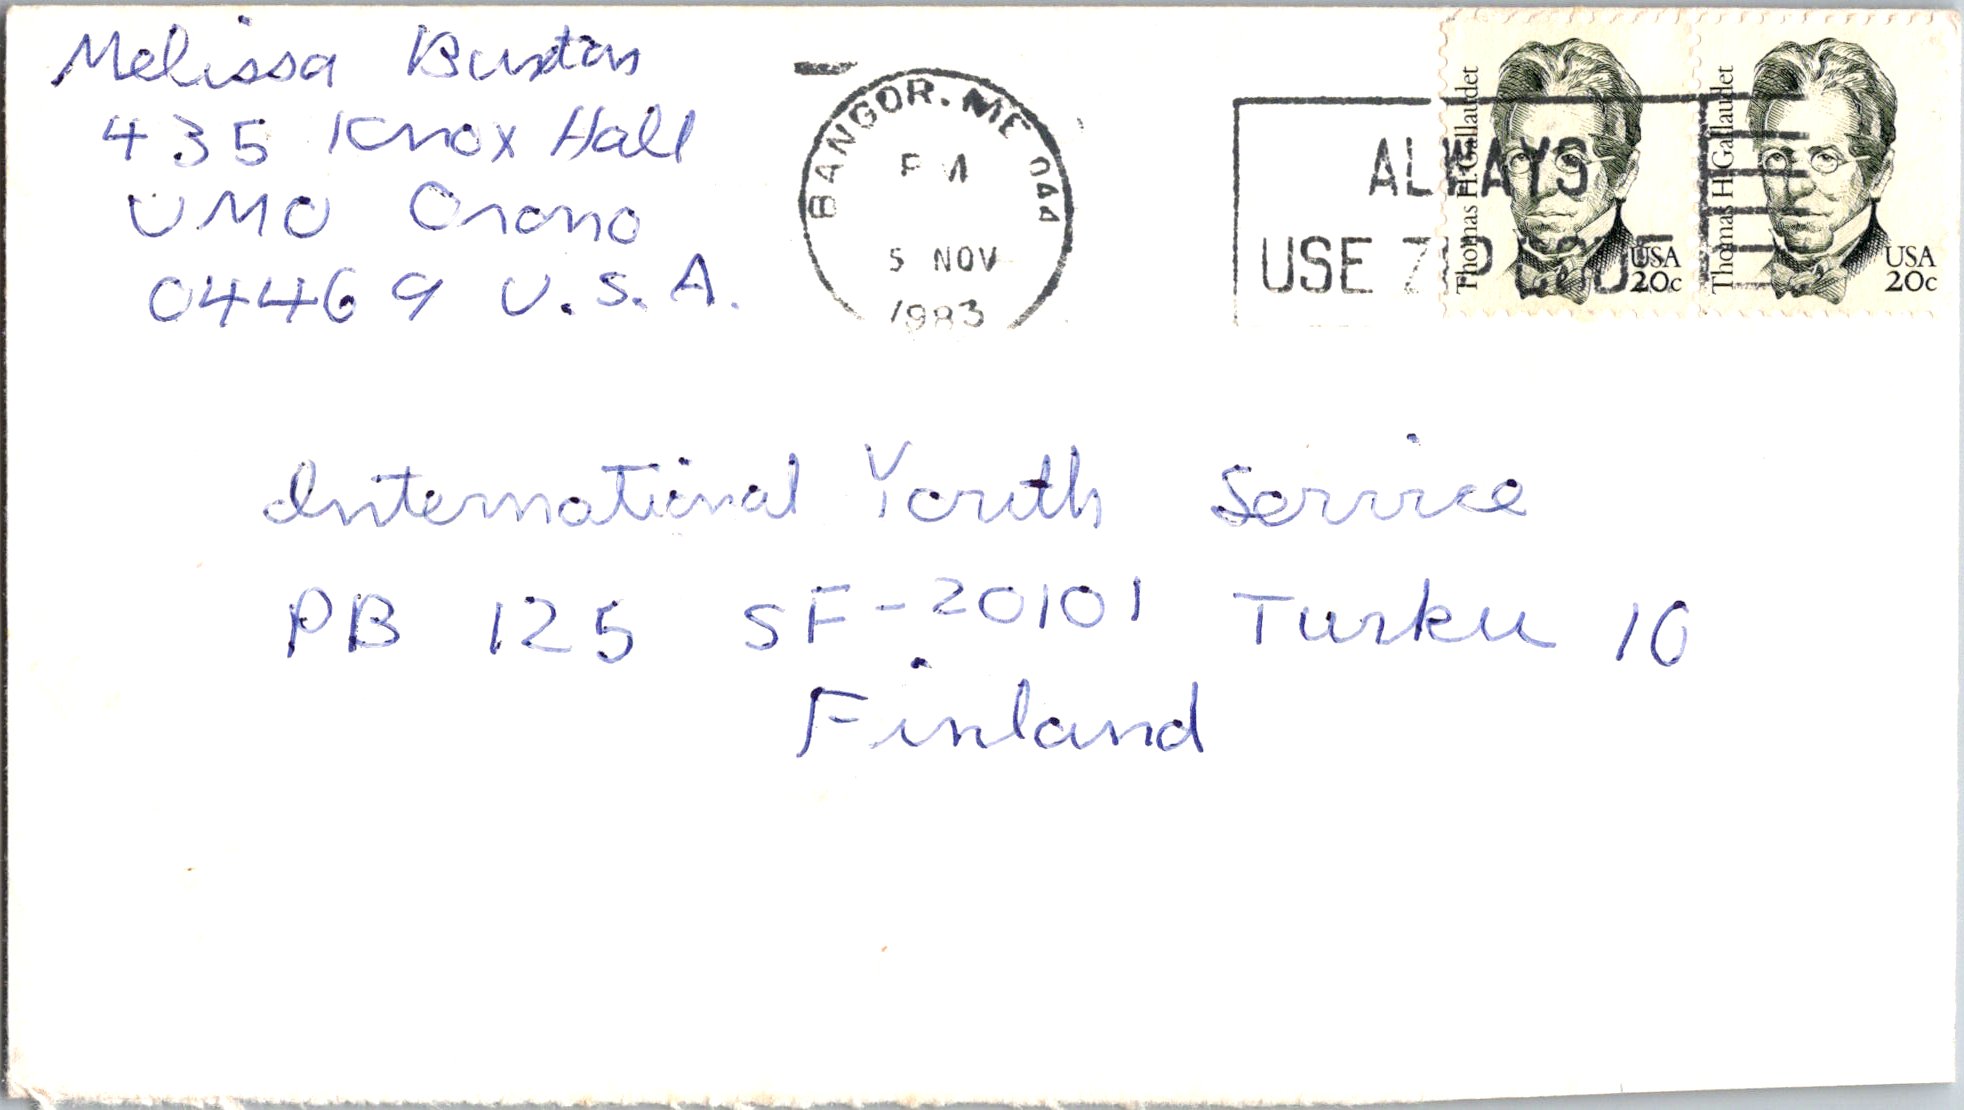 Melissa Buxton
435 Knox Hall
UMO Orono
04469 U.S.A.
BANGOR. ME 044
PM
5 NOV
1983
ALWAYS
USE ZIP CODE
Thomas H. Gallaudet
USA
20c
Thomas H. Gallaudet
USA
20c
International Youth Service
PB 125 SF-20101 Turku 10
Finland